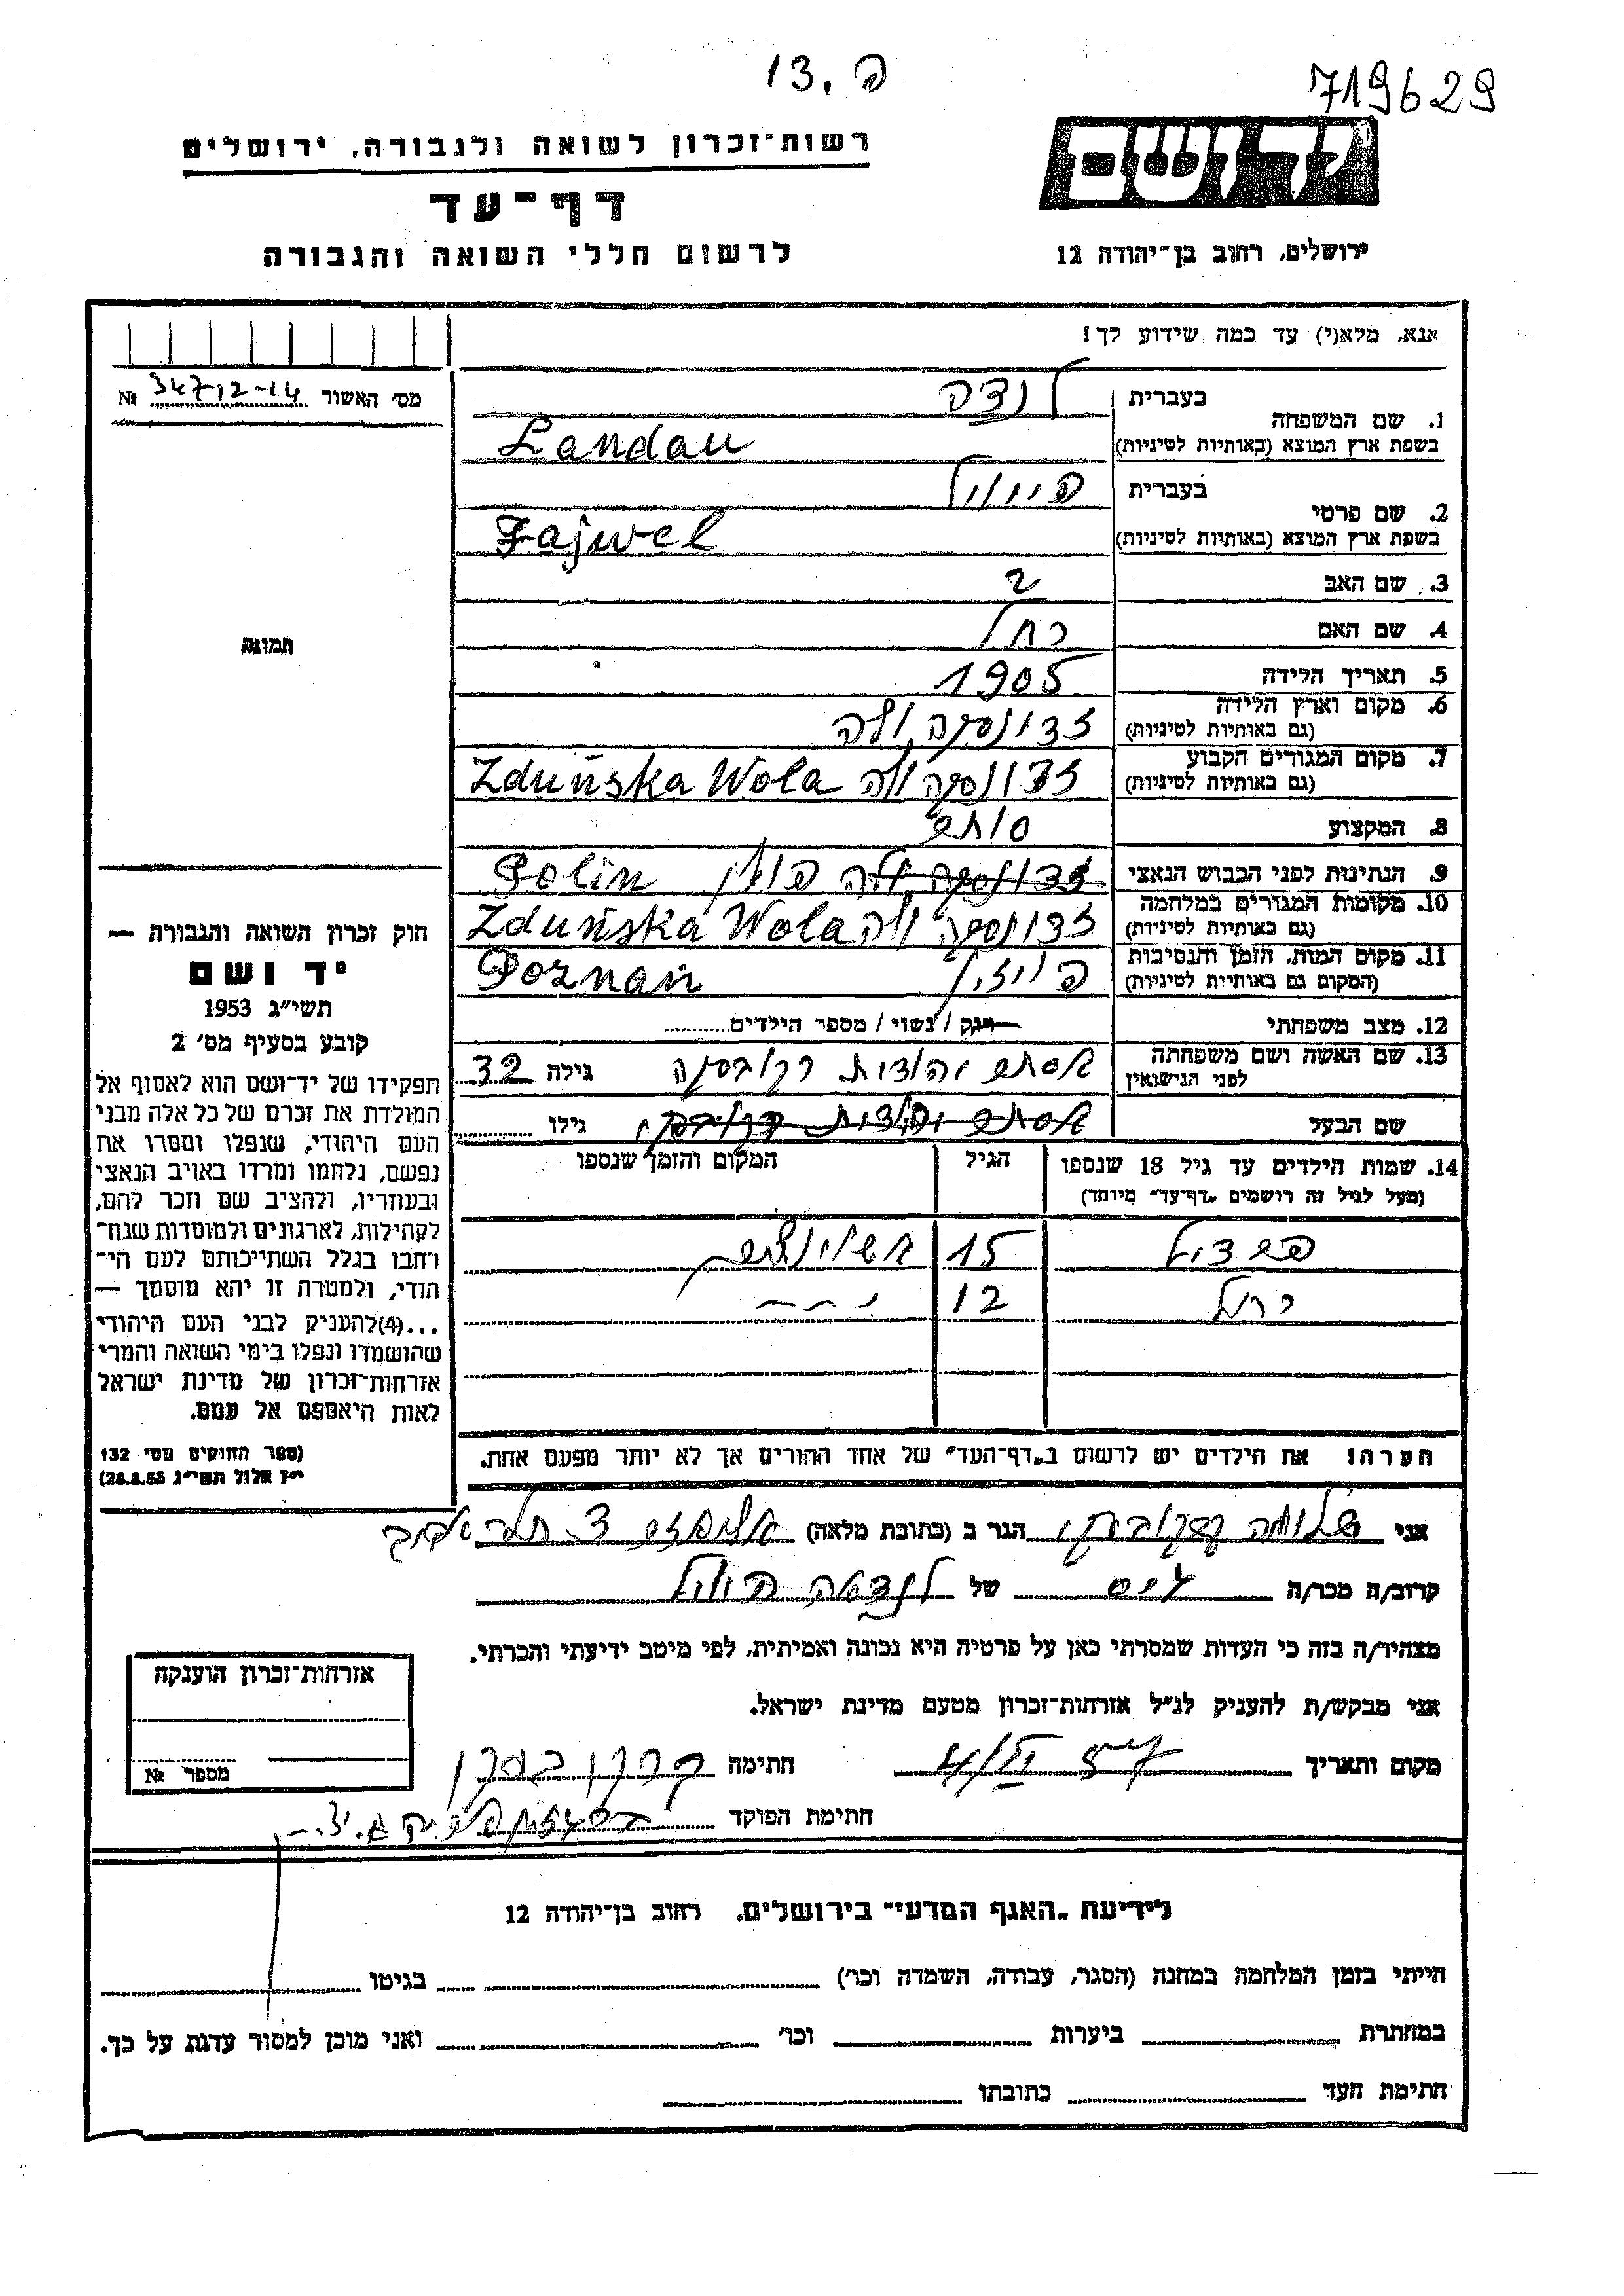 פ. 13
719629
יד ושם
רשות־זכרון לשואה ולגבורה, ירושלים
דף־עד
לרשום חללי השואה והגבורה
ירושלים, רחוב בן־יהודה 12
אנא, מלא(י) עד כמה שידוע לך!
מס׳ האשור 347 12-14 №
1. שם המשפחה
בעברית לנדה
בשפת ארץ המוצא (באותיות לטיניות) Landau
2. שם פרטי
בעברית פייוול
בשפת ארץ המוצא (באותיות לטיניות) Fajwel
3. שם האב
4. שם האם רחל
5. תאריך הלידה 1905
6. מקום וארץ הלידה
(גם באותיות לטיניות) זדונסקה וולה
7. מקום המגורים הקבוע
(גם באותיות לטיניות) זדונסקה וולה Zduńska Wola
8. המקצוע סוחר
9. הנתינות לפני הכבוש הנאצי זדונסקה וולה פולין Polin
10. מקומות המגורים במלחמה
(גם באותיות לטיניות) זדונסקה וולה Zduńska Wola
11. מקום המות, הזמן והנסיבות
(המקום גם באותיות לטיניות) פוזנן Poznań
12. מצב משפחתי רווק / נשוי / מספר הילדים
13. שם האשה ושם משפחתה
לפני הנישואין אסתר יהודית גילה 32
שם הבעל אסתר יהודית גילו
14. שמות הילדים עד גיל 18 שנספו
(מעל לגיל זה רושמים „דף־עד״ מיוחד)
הגיל
המקום והזמן שנספו
15 אושוויץ
12
הערה: את הילדים יש לרשום ב„דף־העד״ של אחד ההורים אך לא יותר מפעם אחת.
תמונה
חוק זכרון השואה והגבורה —
יד ושם
תשי״ג 1953
קובע בסעיף מס׳ 2
תפקידו של יד־ושם הוא לאסוף אל
המולדת את זכרם של כל אלה מבני
העם היהודי, שנפלו ומסרו את
נפשם, נלחמו ומרדו באויב הנאצי
ובעוזריו, ולהציב שם וזכר להם,
לקהילות, לארגונים ולמוסדות שנח־
רבו בגלל השתייכותם לעם הי־
הודי, ולמטרה זו יהא מוסמך —
...(4)להעניק לבני העם היהודי
שהושמדו ונפלו בימי השואה והמרי
אזרחות־זכרון של מדינת ישראל
לאות היאספם אל עמם.
(ספר החוקים מס׳ 132
י״ז אלול תשי״ג 28.8.53)
אני שלומה הגר ב (כתובת מלאה)
קרוב/ה מכר/ה גיס של לנדאו פייוול
מצהיר/ה בזה כי העדות שמסרתי כאן על פרטיה היא נכונה ואמיתית, לפי מיטב ידיעתי והכרתי.
אני מבקש/ת להעניק לנ״ל אזרחות־זכרון מטעם מדינת ישראל.
מקום ותאריך חתימה
חתימת הפוקד
אזרחות־זכרון הוענקה
מספר №
לידיעת „האגף המדעי״ בירושלים, רחוב בן־יהודה 12
הייתי בזמן המלחמה במחנה (הסגר, עבודה, השמדה וכו׳) בגיטו
במחתרת ביערות וכו׳ ואני מוכן למסור עדות על כך.
חתימת העד כתובתו